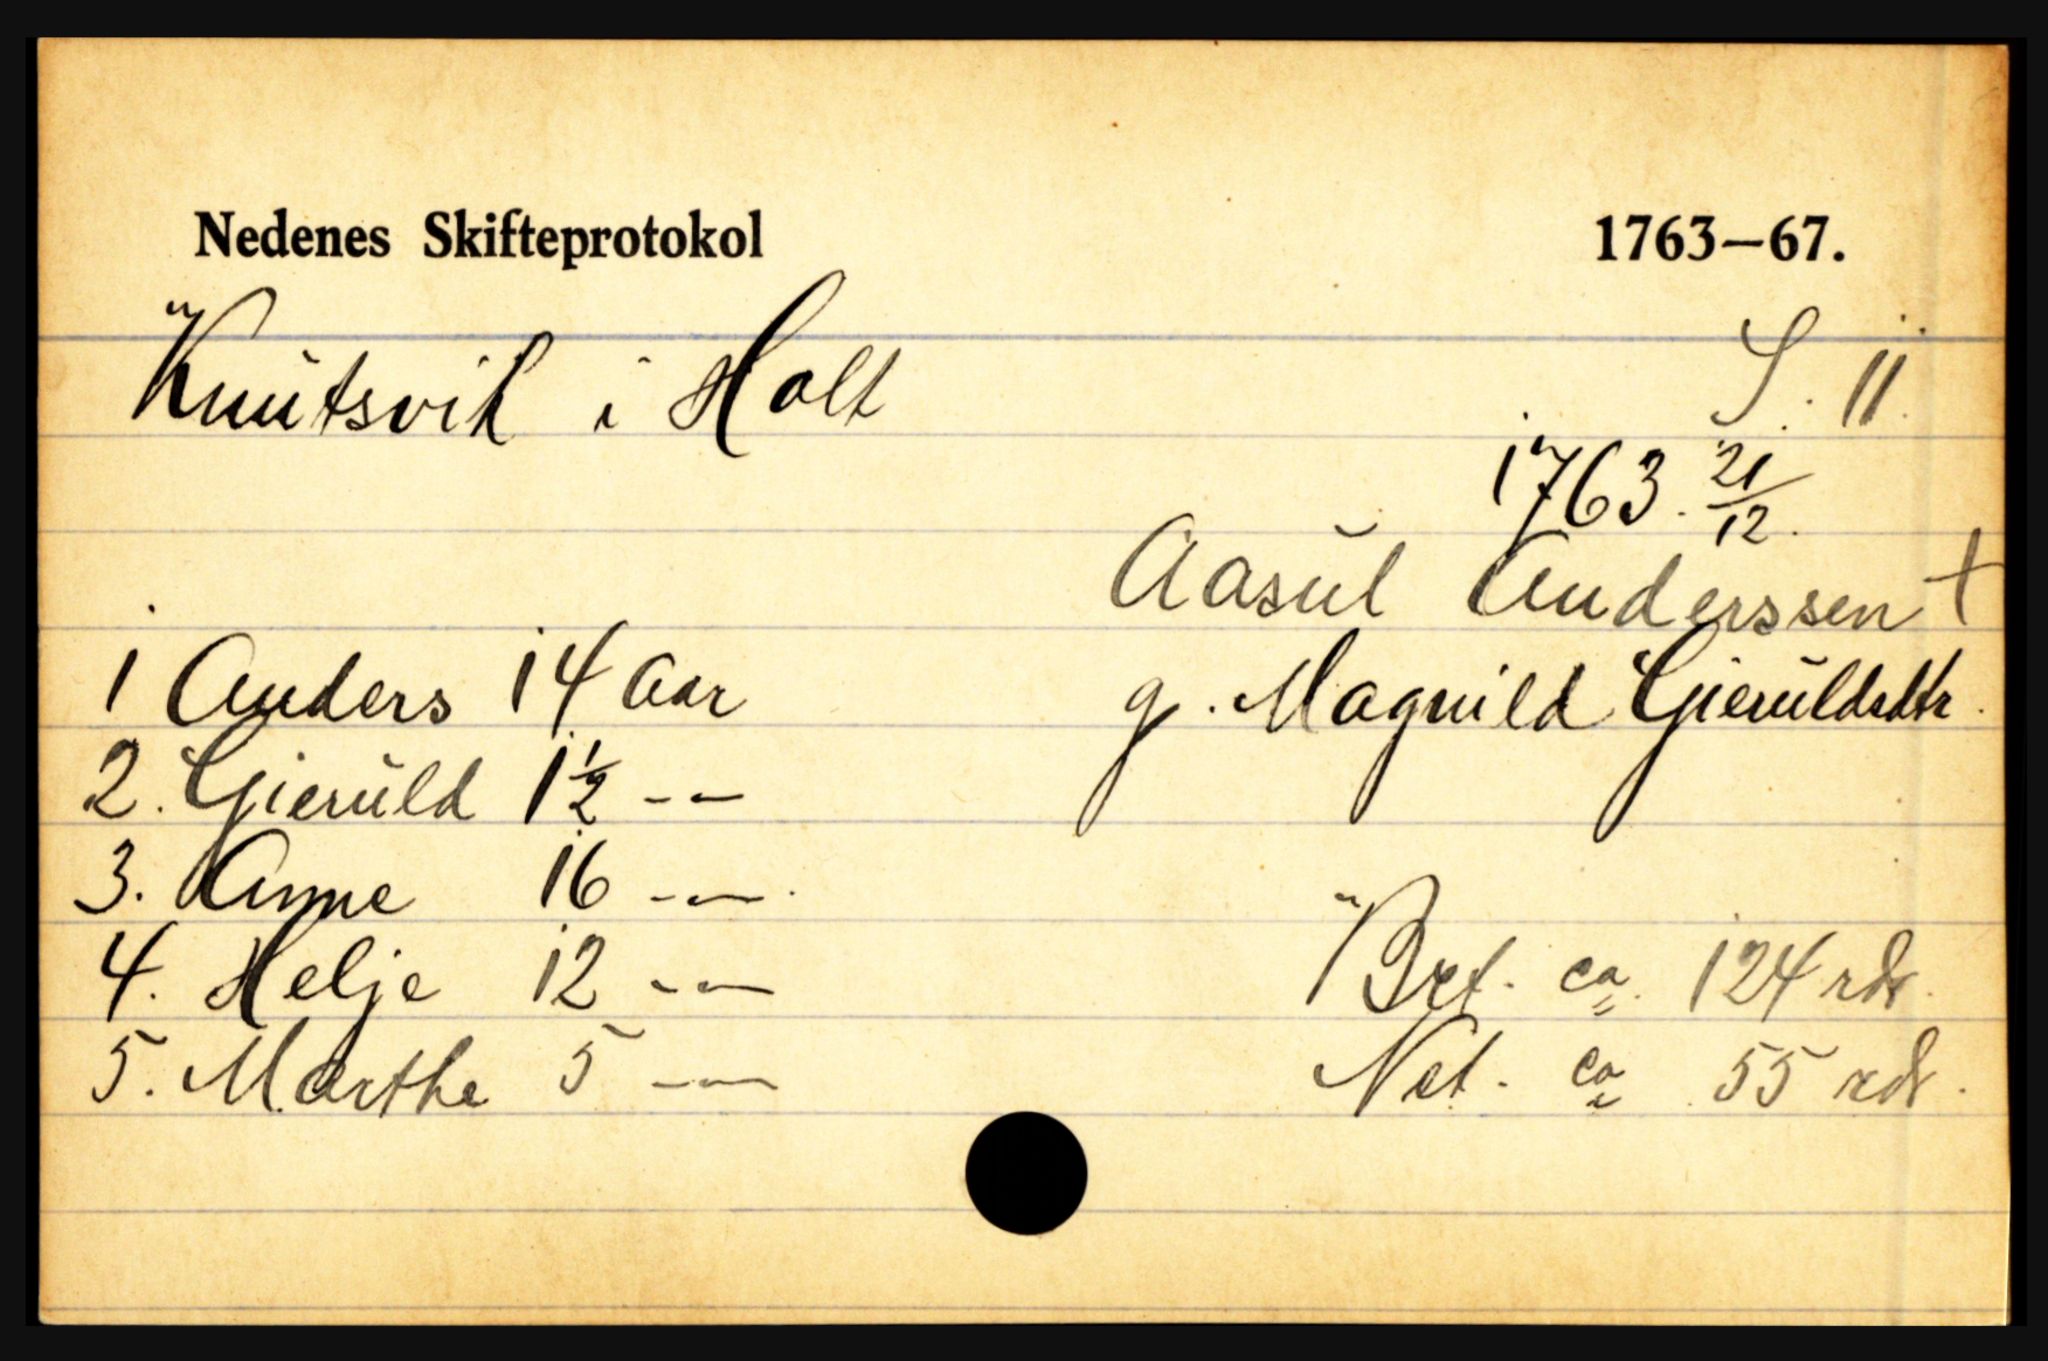 Nedenes Skifteprotokol 1763—67.
Knutsvik i Holt S. 11.
1763. 21/12.
Aasul Anderssen +
1 Anders 14 Aar g. Magnild Gieruldsdtr.
2. Gieruld 1½ -–
3. Anne 16 -–.
4. Helje 12 -– Brt. ca. 124 rdr.
5. Marthe 5 -– Net. ca 55 rdr.